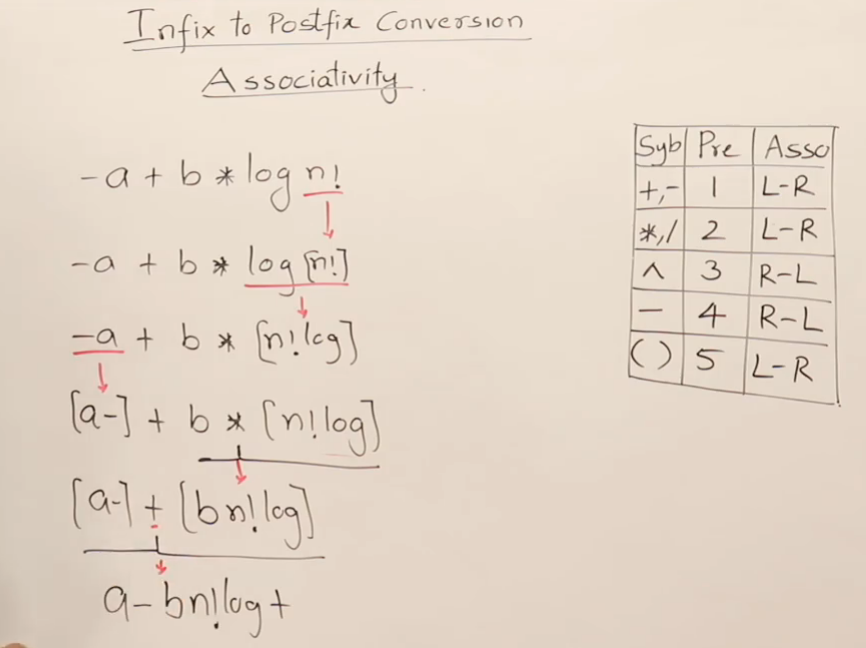 Infix to Postfix Conversion
Associativity.
-a + b * log n!
-a + b * log [n!]
-a + b * [n!log]
[a-] + b * [n!log]
[a-] + [bn!log]
a-bn!log+
Syb Pre Asso
+,- 1 L-R
*,/ 2 L-R
^ 3 R-L
- 4 R-L
( ) 5 L-R